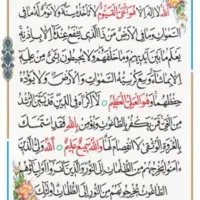 اللَّهُ لَا إِلَٰهَ إِلَّا هُوَ الْحَيُّ الْقَيُّومُ لَا تَأْخُذُهُ سِنَةٌ وَلَا نَوْمٌ لَهُ مَا فِي
السَّمَاوَاتِ وَمَا فِي الْأَرْضِ مَنْ ذَا الَّذِي يَشْفَعُ عِنْدَهُ إِلَّا بِإِذْنِهِ
يَعْلَمُ مَا بَيْنَ أَيْدِيهِمْ وَمَا خَلْفَهُمْ وَلَا يُحِيطُونَ بِشَيْءٍ مِنْ عِلْمِهِ
إِلَّا بِمَا شَاءَ وَسِعَ كُرْسِيُّهُ السَّمَاوَاتِ وَالْأَرْضَ وَلَا يَئُودُهُ
حِفْظُهُمَا وَهُوَ الْعَلِيُّ الْعَظِيمُ لَا إِكْرَاهَ فِي الدِّينِ قَدْ تَبَيَّنَ الرُّشْدُ
مِنَ الْغَيِّ فَمَنْ يَكْفُرْ بِالطَّاغُوتِ وَيُؤْمِنْ بِاللَّهِ فَقَدِ اسْتَمْسَكَ
بِالْعُرْوَةِ الْوُثْقَىٰ لَا انْفِصَامَ لَهَا وَاللَّهُ سَمِيعٌ عَلِيمٌ اللَّهُ وَلِيُّ الَّذِينَ
آمَنُوا يُخْرِجُهُمْ مِنَ الظُّلُمَاتِ إِلَى النُّورِ وَالَّذِينَ كَفَرُوا أَوْلِيَاؤُهُمُ
الطَّاغُوتُ يُخْرِجُونَهُمْ مِنَ النُّورِ إِلَى الظُّلُمَاتِ أُولَٰئِكَ